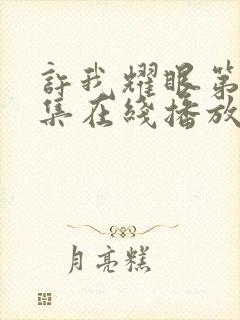 許我耀眼第
集在綫播放
月亮糕